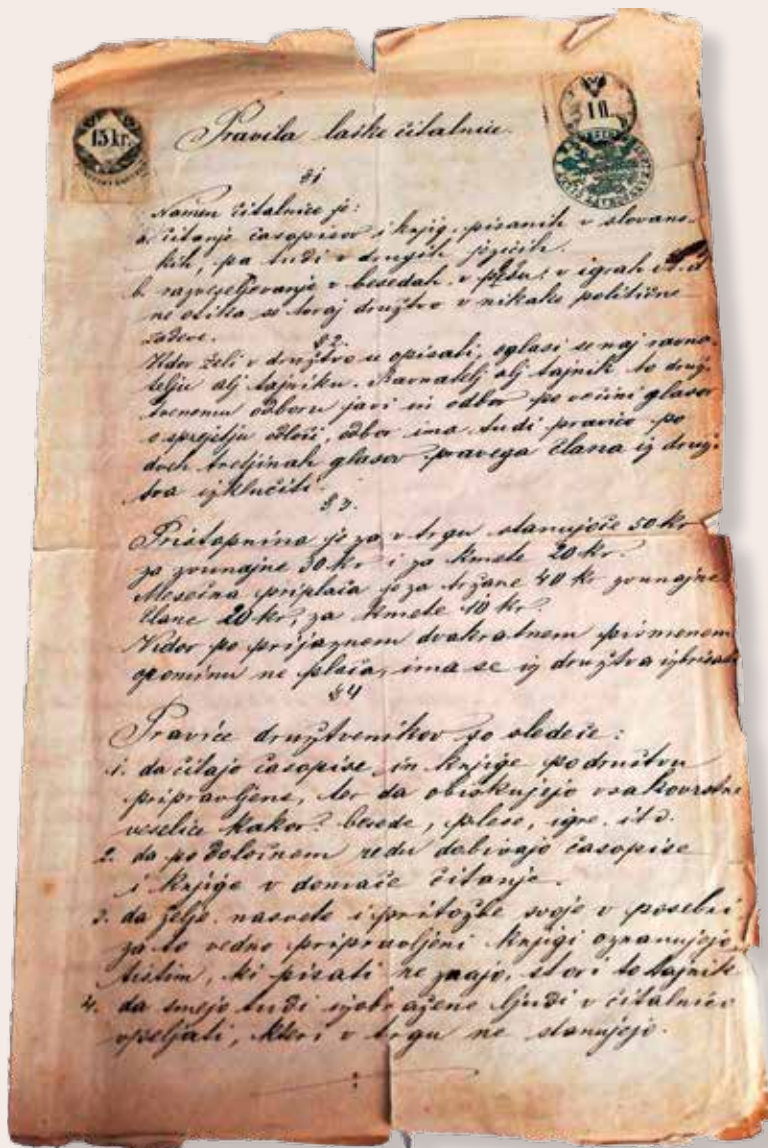 15 kr.
1 fl.
Pravila laške čitalnice.
§ 1
Namen čitalnice je:
a. čitanje časopisov i knjig, pisanih v slovans-
kih, pa tudi v drugih jezicih.
b. razveseljevanje v besedah, v plesu, v igrah
ne vtika se toraj družtvo v nikake politične
zadeve.
§ 2.
Kdor želi v družtvo se vpisati, oglasi se naj ravna-
telju alj tajniku. Ravnatelj alj tajnik to druž-
tvenemu odboru javi in odbor po večini glasov
o sprejetju odloči, odbor ima tudi pravico po
dveh tretjinah glasov pravega člana iz druž-
tva izključiti.
§ 3.
Pristopnina je za v trgu stanujoče 50 kr
za zvunajne 30 kr i za kmete 20 kr.
Mesečna priplača je za tržane 40 kr zvunajne
člane 20 kr, za kmete 10 kr.
Kdor po prijaznem dvakratnem pismenem
opominu ne plača, ima se iz družtva izbrisati
§ 4
Pravice družtvenikov so sledeče:
1. da čitajo časopise in knjige po družtvu
pripravljene, ter da obiskujejo vsakovrstne
veselice kakor: besede, plese, igre, itd.
2. da po določnem redu dobivajo časopise
i knjige v domače čitanje.
3. da želje, nasvete i pritožbe svoje v posebni
za to vedno pripravljeni knjigi oznanujejo,
tistim, ki pisati ne znajo, stori to tajnik
4. da smejo tudi izobražene ljudi v čitalnico
vpeljati, kteri v trgu ne stanujejo.